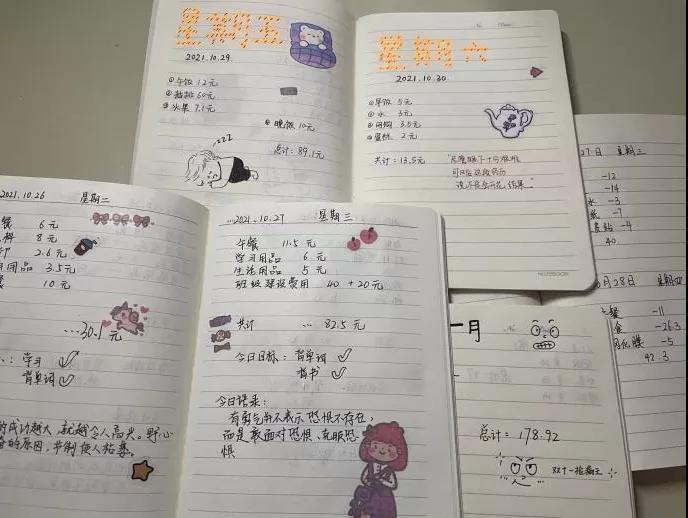 星期五
2021.10.29
①午饭 12元
60元
③水果 7.1元
④晚饭 10元
总计：89.1元
zzz
星期六
2021.10.30
①早饭 5元
②水 3元
3.5元
2元
共计：13.5元
NOTEBOOK
2021.10.26 星期二
餐 6元
料 8元
2.6元
用品 3.5元
餐 10元
...30.1元
：学习 ✓
背单词 ✓
的成功越大，就越令人高兴。野心
的原因，节制使人枯萎。
...2021.10.27 星期三
午餐 11.5元
学习用品 6元
生活用品 5元
班级建设费用 40+20元
共计 ... 82.5元
今日目标：背单词 ✓
背书 ✓
今日语录：
有勇气并不表示恐惧不存在，
而是敢面对恐惧、克服恐
惧
27日 星期三
-12
-14
水 -3
-7
-4
40
月28日 星期四
餐 -11
食 -26.3
-5
42.3
一月
总计：178.92
双十一